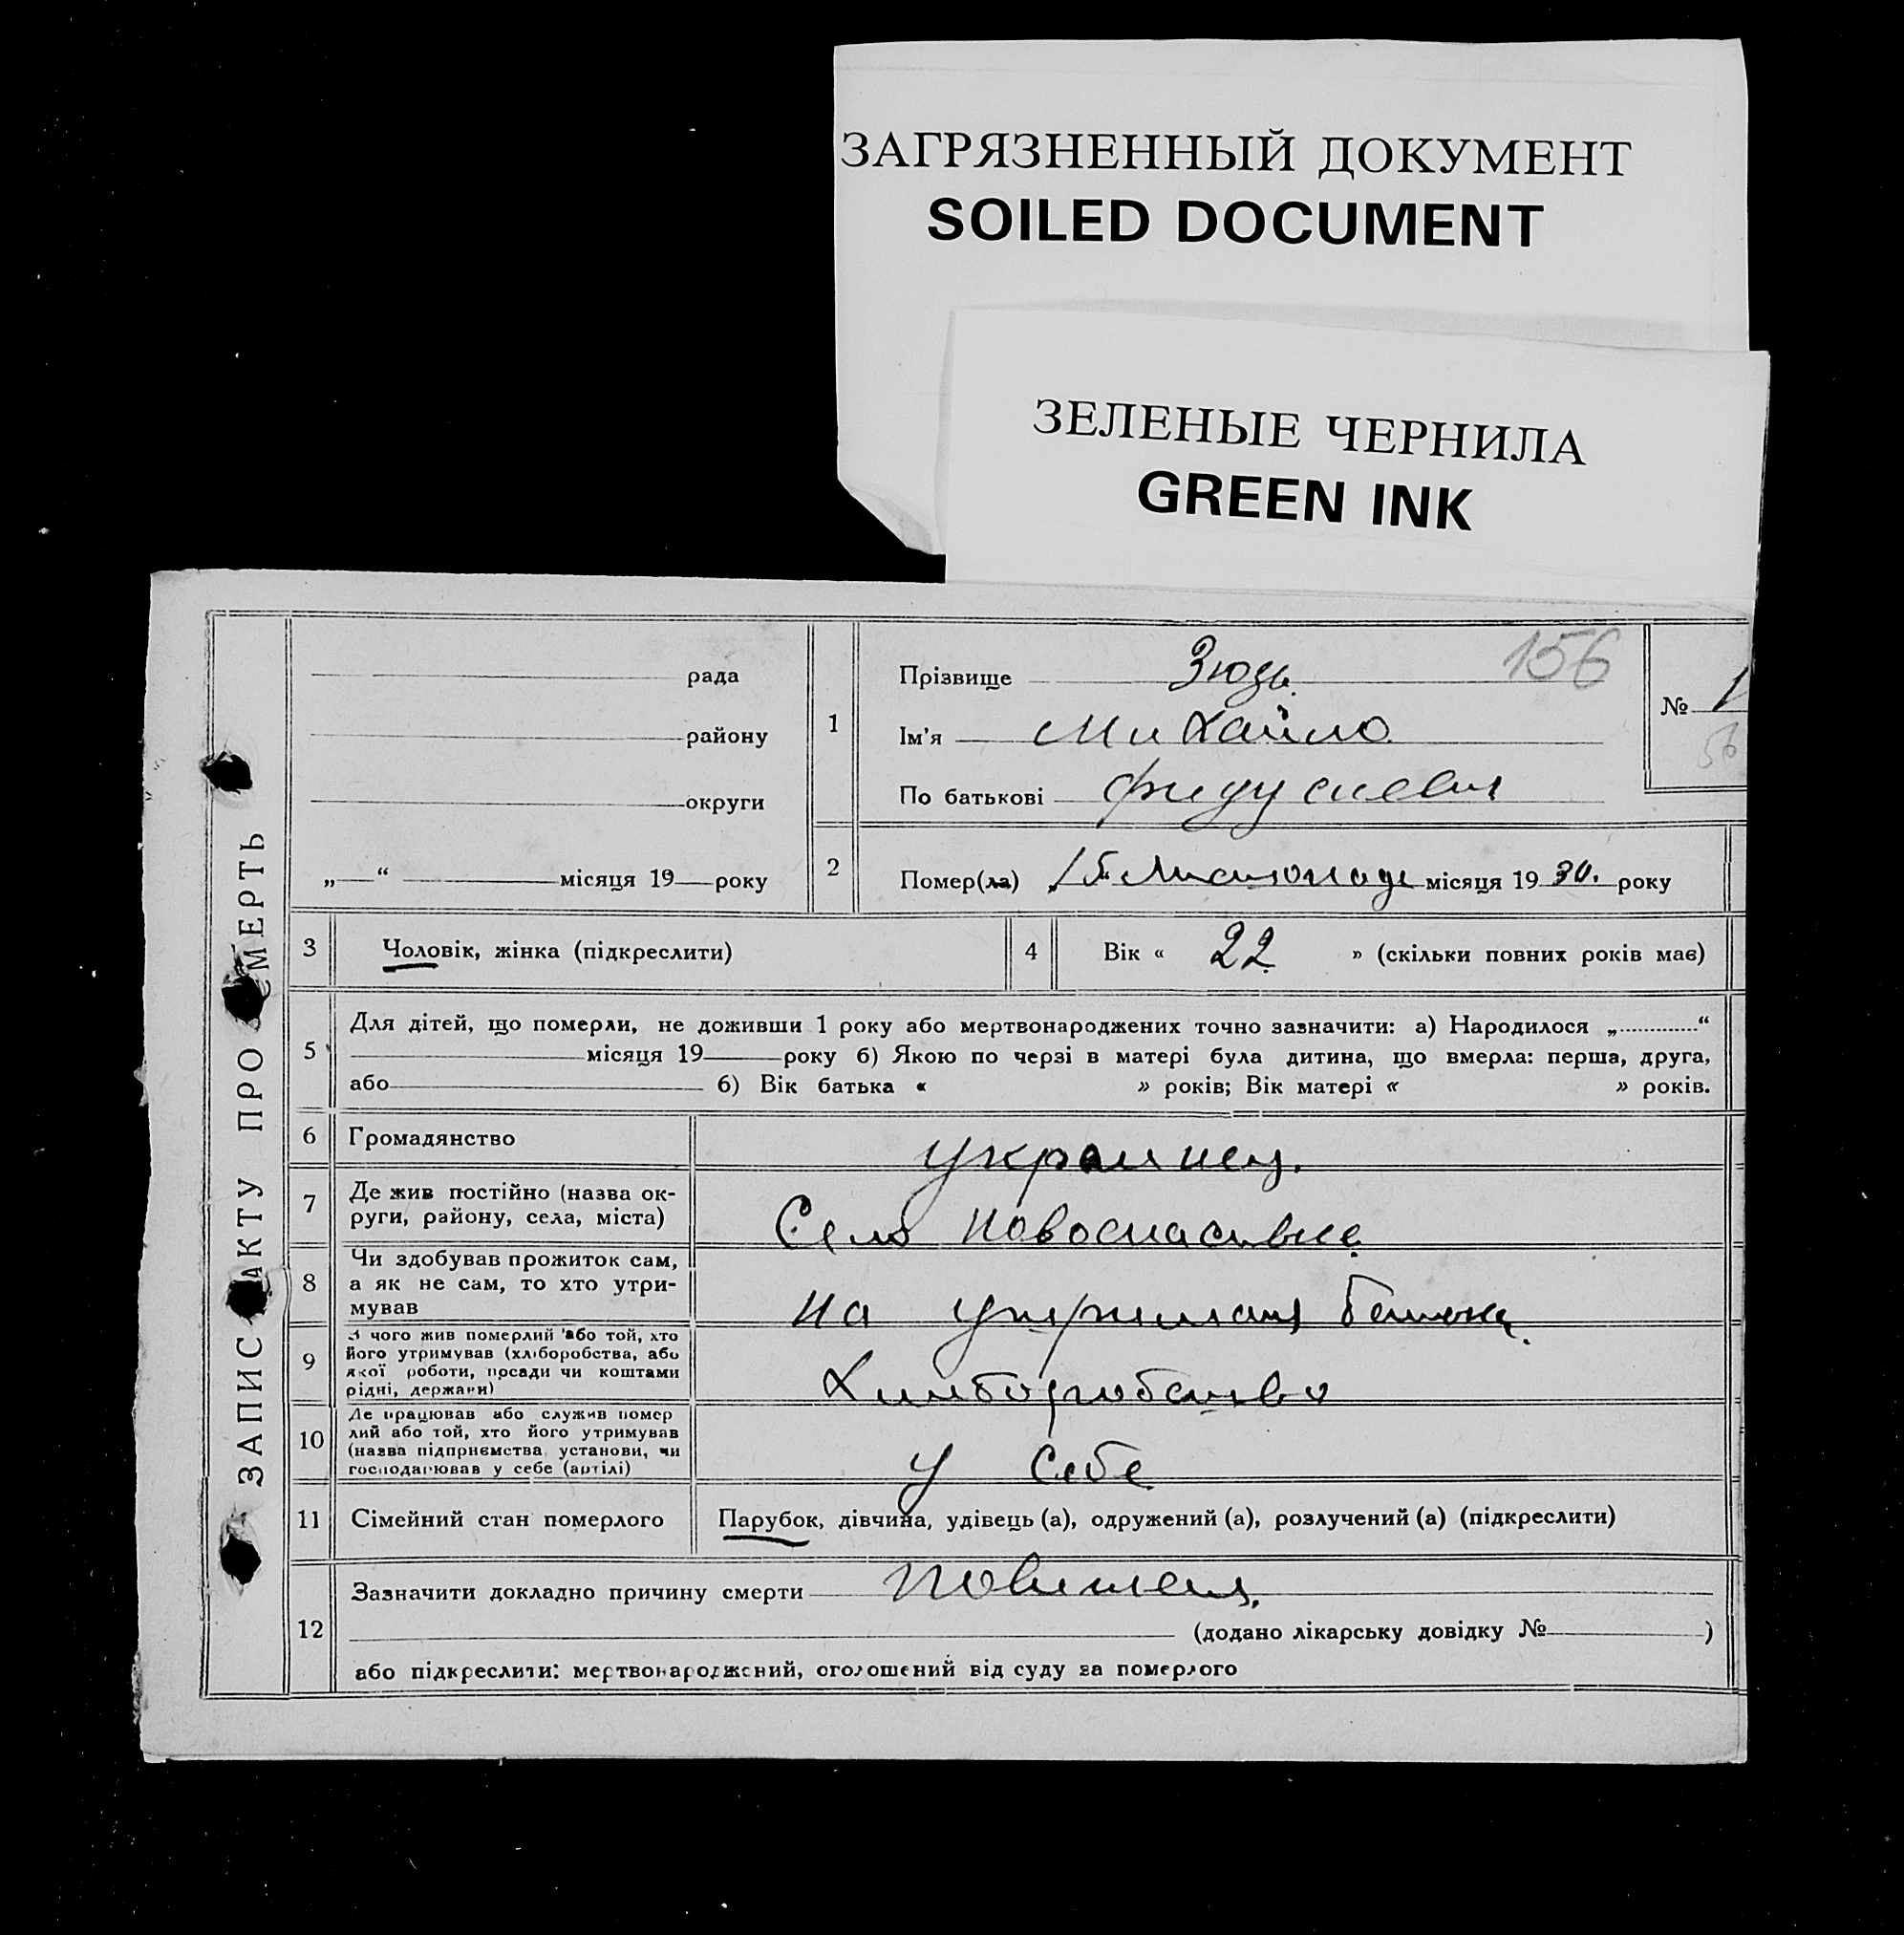 ЗАГРЯЗНЕННЫЙ ДОКУМЕНТ
SOILED DOCUMENT
ЗЕЛЕНЫЕ ЧЕРНИЛА
GREEN INK
ЗАПИС АКТУ ПРО СМЕРТЬ
рада
району
округи
„—“ місяця 19 року
1
Прізвище Зюзь 156
Ім'я Михайло
По батькові
№ 1
56
2
Помер(ла) 15 Листопада місяця 19 30. року
3 Чоловік, жінка (підкреслити)
4 Вік « 22 » (скільки повних років має)
5 Для дітей, що померли, не доживши 1 року або мертвонароджених точно зазначити: а) Народилося „.............“
місяця 19 року б) Якою по черзі в матері була дитина, що вмерла: перша, друга,
або 6) Вік батька « » років; Вік матері « » років.
6 Громадянство украинец.
7 Де жив постійно (назва ок-
руги, району, села, міста) Село Новоспасивне
8 Чи здобував прожиток сам,
а як не сам, то хто утри-
мував на утриманя батька
9 З чого жив померлий або той, хто
його утримував (хліборобства, або
якої роботи, посади чи коштами
рідні, держави) Хлиборобство
10 Де працював або служив помер
лий або той, хто його утримував
(назва підприємства, установи, чи
господарював у себе (артілі) у себе
11 Сімейний стан померлого Парубок, дівчина, удівець (а), одружений (а), розлучений (а) (підкреслити)
12 Зазначити докладно причину смерти
(додано лікарську довідку № )
або підкреслити: мертвонароджений, оголошений від суду за померлого